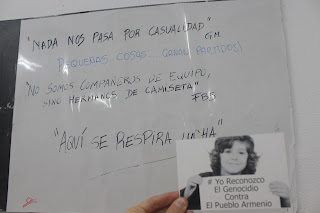 "NADA NOS PASA POR CASUALIDAD"
G.M.
PEQUEÑAS COSAS GANAN PARTIDOS!
"NO SOMOS COMPAÑEROS DE EQUIPO,
SINO HERMANOS DE CAMISETA"
FBS
"AQUÍ SE RESPIRA HACHA"
# Yo Reconozco
El Genocidio
Contra
El Pueblo Armenio